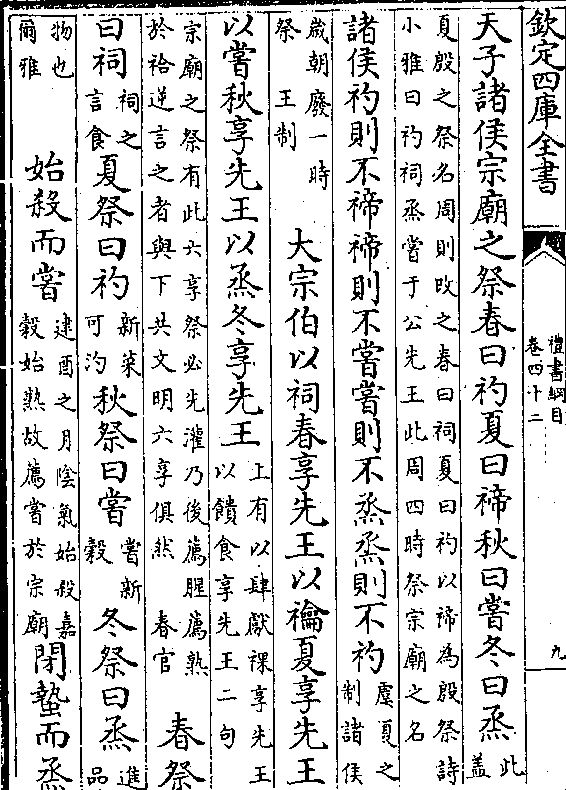 欽定四庫全書
禮書綱目
卷四十二
九
天子諸侯宗廟之祭春曰礿夏曰禘秋曰嘗冬曰烝
此
蓋
夏殷之祭名周則攺之春曰祠夏曰礿以禘為殷祭詩
小雅曰礿祠烝嘗于公先王此周四時祭宗廟之名
諸侯礿則不禘禘則不嘗嘗則不烝烝則不礿
虞夏之
制諸侯
歲朝廢一時
祭 王制
大宗伯以祠春享先王以禴夏享先王
以嘗秋享先王以烝冬享先王
上有以肆獻祼享先王
以饋食享先王二句
宗廟之祭有此六享祭必先灌乃後薦腥薦熟
於祫逆言之者與下共文明六享俱然 春官
春祭
曰祠
祠之
言食
夏祭曰礿
新菜
可汋
秋祭曰嘗
嘗新
穀
冬祭曰烝
進
品
物也
爾雅
始殺而嘗
建酉之月陰氣始殺嘉
穀始熟故薦嘗於宗廟
閉蟄而烝